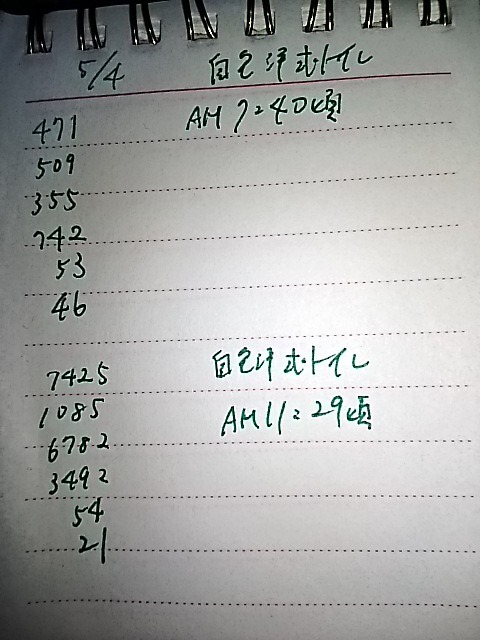 5/4 白色洋式トイレ
471 AM 7:40頃
509
355
742
53
46
7425 白色洋式トイレ
1085 AM 11:29頃
6782
3492
54
21